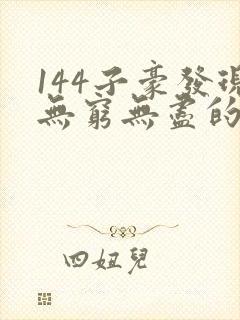 144子豪發現
無窮無盡的
四妞兒